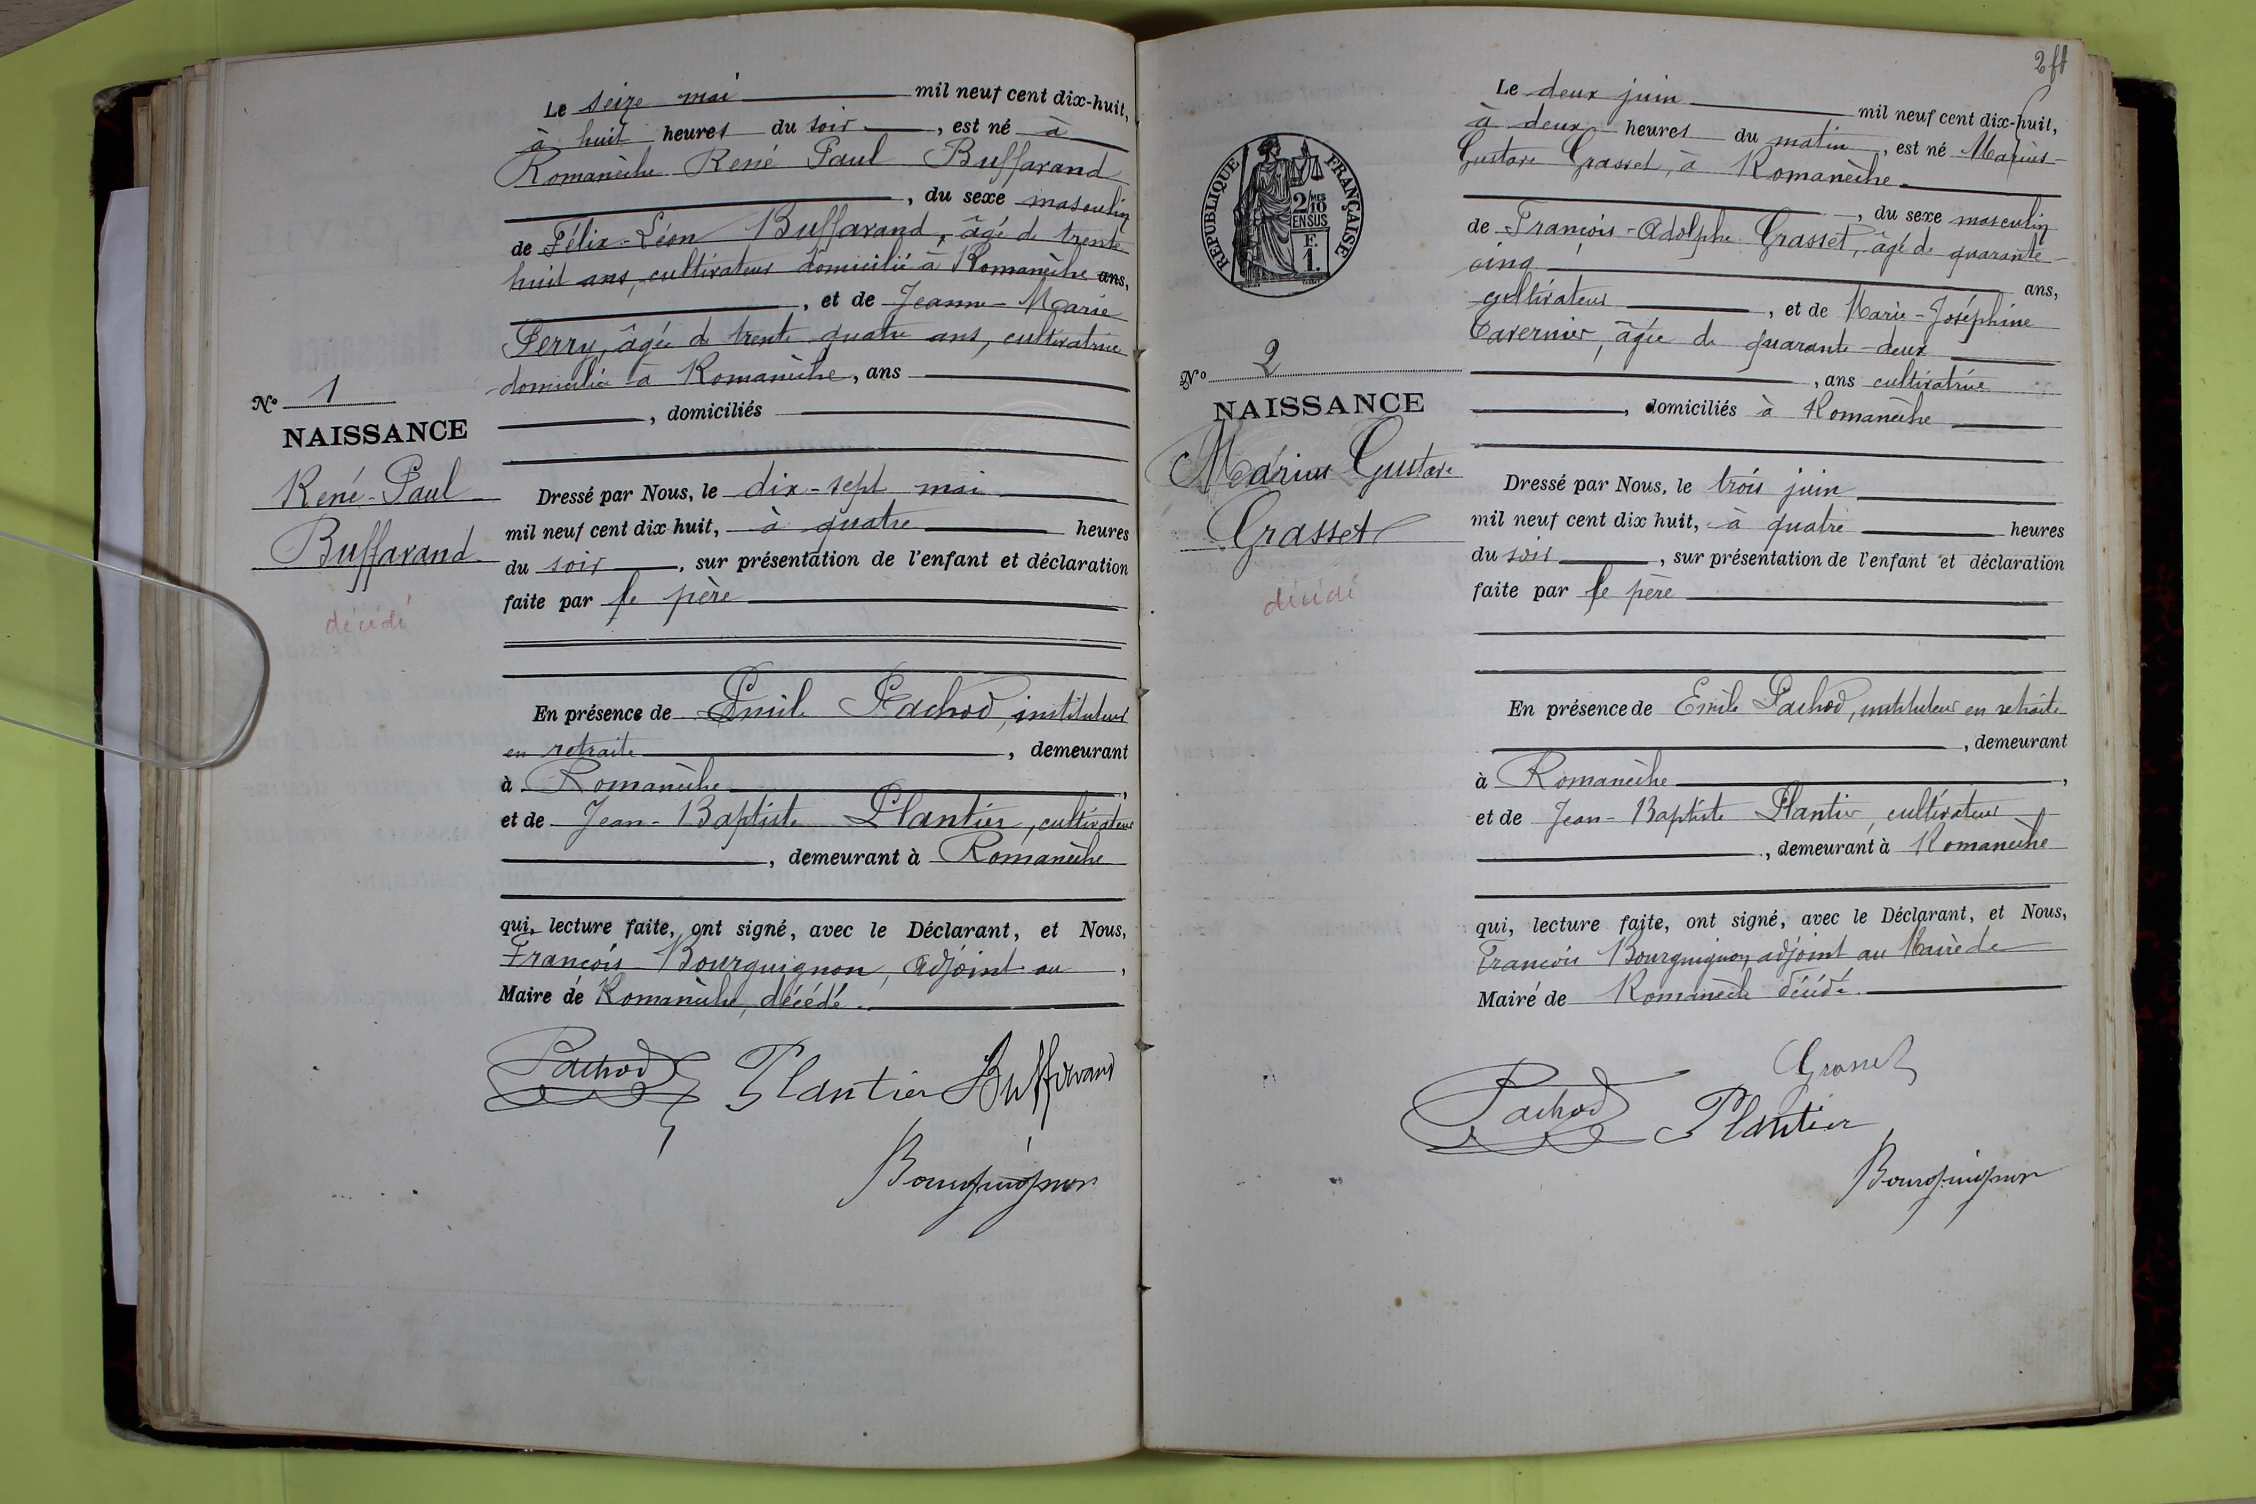 Le seize mai mil neuf cent dix-huit,
à huit heures du soir, est né à
Romanèche René Paul Buffavand
, du sexe masculin
de Félix-Léon Buffavand, âgé de trente
huit ans, cultivateur domicilié à Romanèche ans,
, et de Jeanne-Marie
Perry, âgée de trente quatre ans, cultivatrice
domiciliée à Romanèche, ans
, domiciliés
N° 1
NAISSANCE
René-Paul
Buffavand
décédé
Dressé par Nous, le dix-sept mai
mil neuf cent dix huit, à quatre heures
du soir, sur présentation de l'enfant et déclaration
faite par le père
En présence de Emile Pachod, instituteur
en retraite, demeurant
à Romanèche,
et de Jean-Baptiste Plantier, cultivateur
, demeurant à Romanèche
qui, lecture faite, ont signé, avec le Déclarant, et Nous,
François Bourguignon, adjoint au,
Maire de Romanèche, décédé.
Pachod Plantier Buffavand
Bourguignon
Le deux juin mil neuf cent dix-huit,
à deux heures du matin, est né Marius-
Gustave Grasset, à Romanèche
, du sexe masculin
de François-Adolphe Grasset, âgé de quarante-
cinq ans,
cultivateur, et de Marie-Joséphine
Tavernier, âgée de quarante-deux
, ans cultivatrice
, domiciliés à Romanèche
REPUBLIQUE FRANÇAISE
2/10 EN SUS
F.
1.
N° 2
NAISSANCE
Marius Gustave
Grasset
décédé
Dressé par Nous, le trois juin
mil neuf cent dix huit, à quatre heures
du soir, sur présentation de l'enfant et déclaration
faite par le père
En présence de Emile Pachod, instituteur en retraite
, demeurant
à Romanèche,
et de Jean-Baptiste Plantier, cultivateur
, demeurant à Romanèche
qui, lecture faite, ont signé, avec le Déclarant, et Nous,
François Bourguignon adjoint au Maire de
Maire de Romanèche décédé.
Grasset
Pachod Plantier
Bourguignon